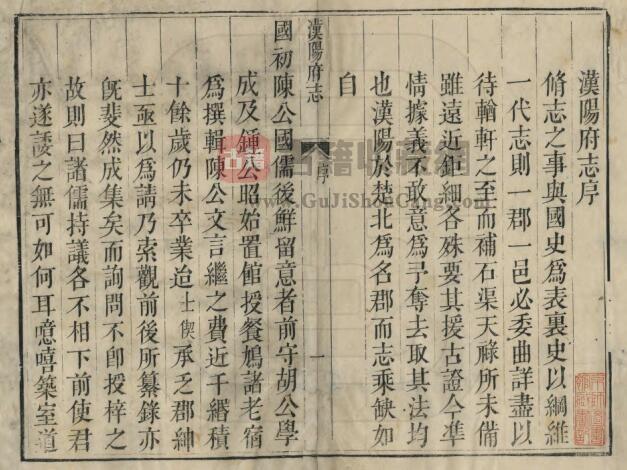 漢陽府志序
脩志之事與國史爲表裏史以綱維
一代志則一郡一邑必委曲詳盡以
待輶軒之至而補石渠天祿所未備
雖遠近鉅細各殊要其援古證今準
情據義不敢意爲予奪去取其法均
也漢陽於楚北爲名郡而志乘缺如
自
漢陽府志
序
一
國初陳公國儒後鮮留意者前守胡公學
成及鍾公昭始置館授餐鳩諸老宿
爲撰輯陳公文言繼之費近千緡積
十餘歲仍未卒業迨士偰承乏郡紳
士亟以爲請乃索觀前後所纂錄亦
旣斐然成集矣而詢問不卽授梓之
故則曰諸儒持議各不相下前使君
亦遂諉之無可如何耳噫嘻築室道
古籍
古籍收藏網
www.GuJiShouCang.com